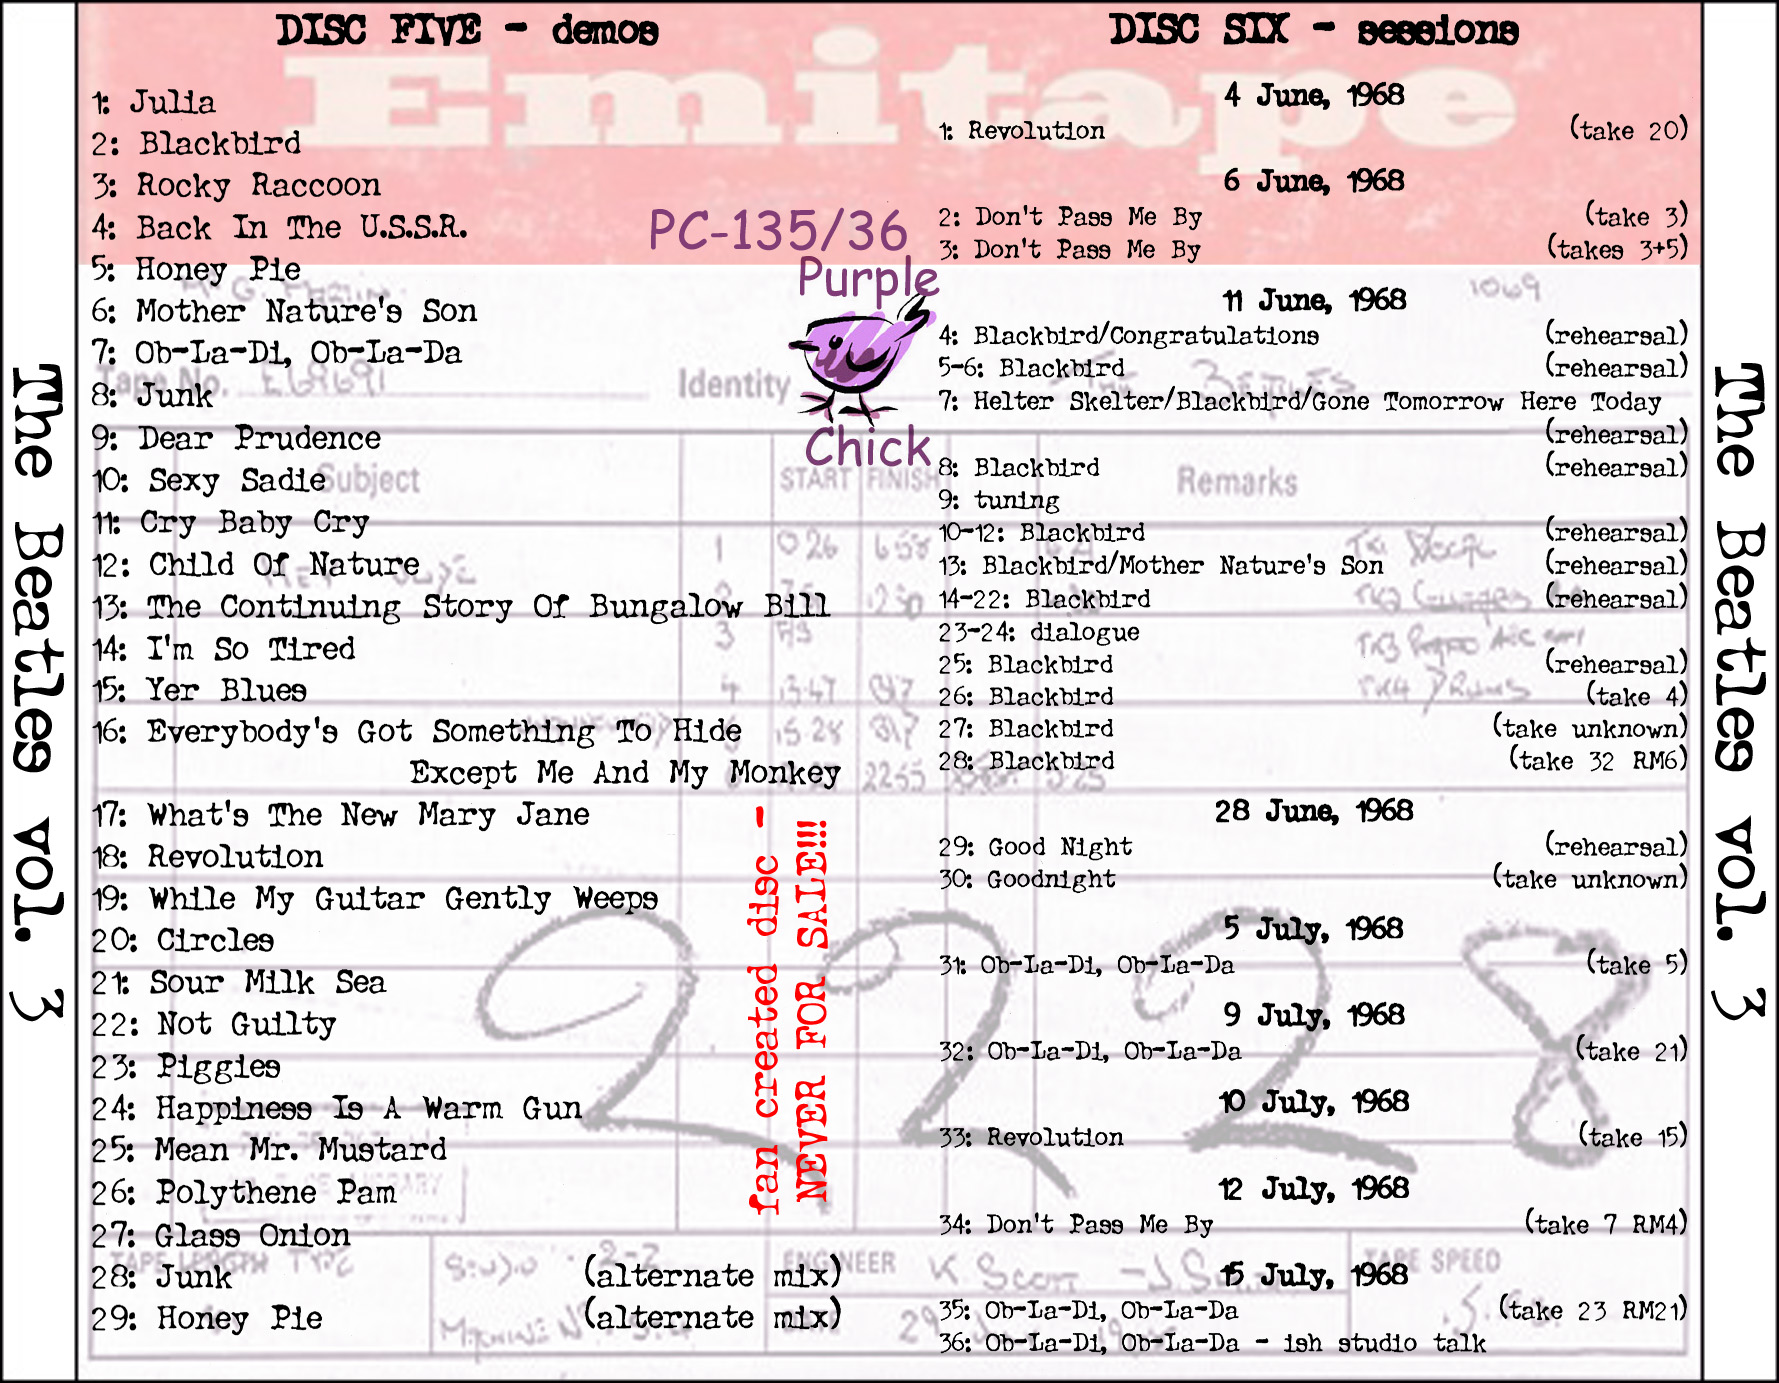 The Beatles vol. 3
DISC FIVE - demos
1: Julia
2: Blackbird
3: Rocky Raccoon
4: Back In The U.S.S.R.
5: Honey Pie
6: Mother Nature's Son
7: Ob-La-Di, Ob-La-Da
8: Junk
9: Dear Prudence
10: Sexy Sadie
11: Cry Baby Cry
12: Child Of Nature
13: The Continuing Story Of Bungalow Bill
14: I'm So Tired
15: Yer Blues
16: Everybody's Got Something To Hide
Except Me And My Monkey
17: What's The New Mary Jane
18: Revolution
19: While My Guitar Gently Weeps
20: Circles
21: Sour Milk Sea
22: Not Guilty
23: Piggies
24: Happiness Is A Warm Gun
25: Mean Mr. Mustard
26: Polythene Pam
27: Glass Onion
28: Junk (alternate mix)
29: Honey Pie (alternate mix)
Emitape
PC-135/36
Purple
Chick
fan created disc -
NEVER FOR SALE!!!
DISC SIX - sessions
4 June, 1968
1: Revolution (take 20)
6 June, 1968
2: Don't Pass Me By (take 3)
3: Don't Pass Me By (takes 3+5)
11 June, 1968
4: Blackbird/Congratulations (rehearsal)
5-6: Blackbird (rehearsal)
7: Helter Skelter/Blackbird/Gone Tomorrow Here Today
(rehearsal)
8: Blackbird (rehearsal)
9: tuning
10-12: Blackbird (rehearsal)
13: Blackbird/Mother Nature's Son (rehearsal)
14-22: Blackbird (rehearsal)
23-24: dialogue
25: Blackbird (rehearsal)
26: Blackbird (take 4)
27: Blackbird (take unknown)
28: Blackbird (take 32 RM6)
28 June, 1968
29: Good Night (rehearsal)
30: Goodnight (take unknown)
5 July, 1968
31: Ob-La-Di, Ob-La-Da (take 5)
9 July, 1968
32: Ob-La-Di, Ob-La-Da (take 21)
10 July, 1968
33: Revolution (take 15)
12 July, 1968
34: Don't Pass Me By (take 7 RM4)
15 July, 1968
35: Ob-La-Di, Ob-La-Da (take 23 RM21)
36: Ob-La-Di, Ob-La-Da - ish studio talk
The Beatles vol. 3
1069
Tape No. E69691 Identity
Subject START FINISH Remarks
2228
TAPE LENGTH
ENGINEER K Scott
TAPE SPEED